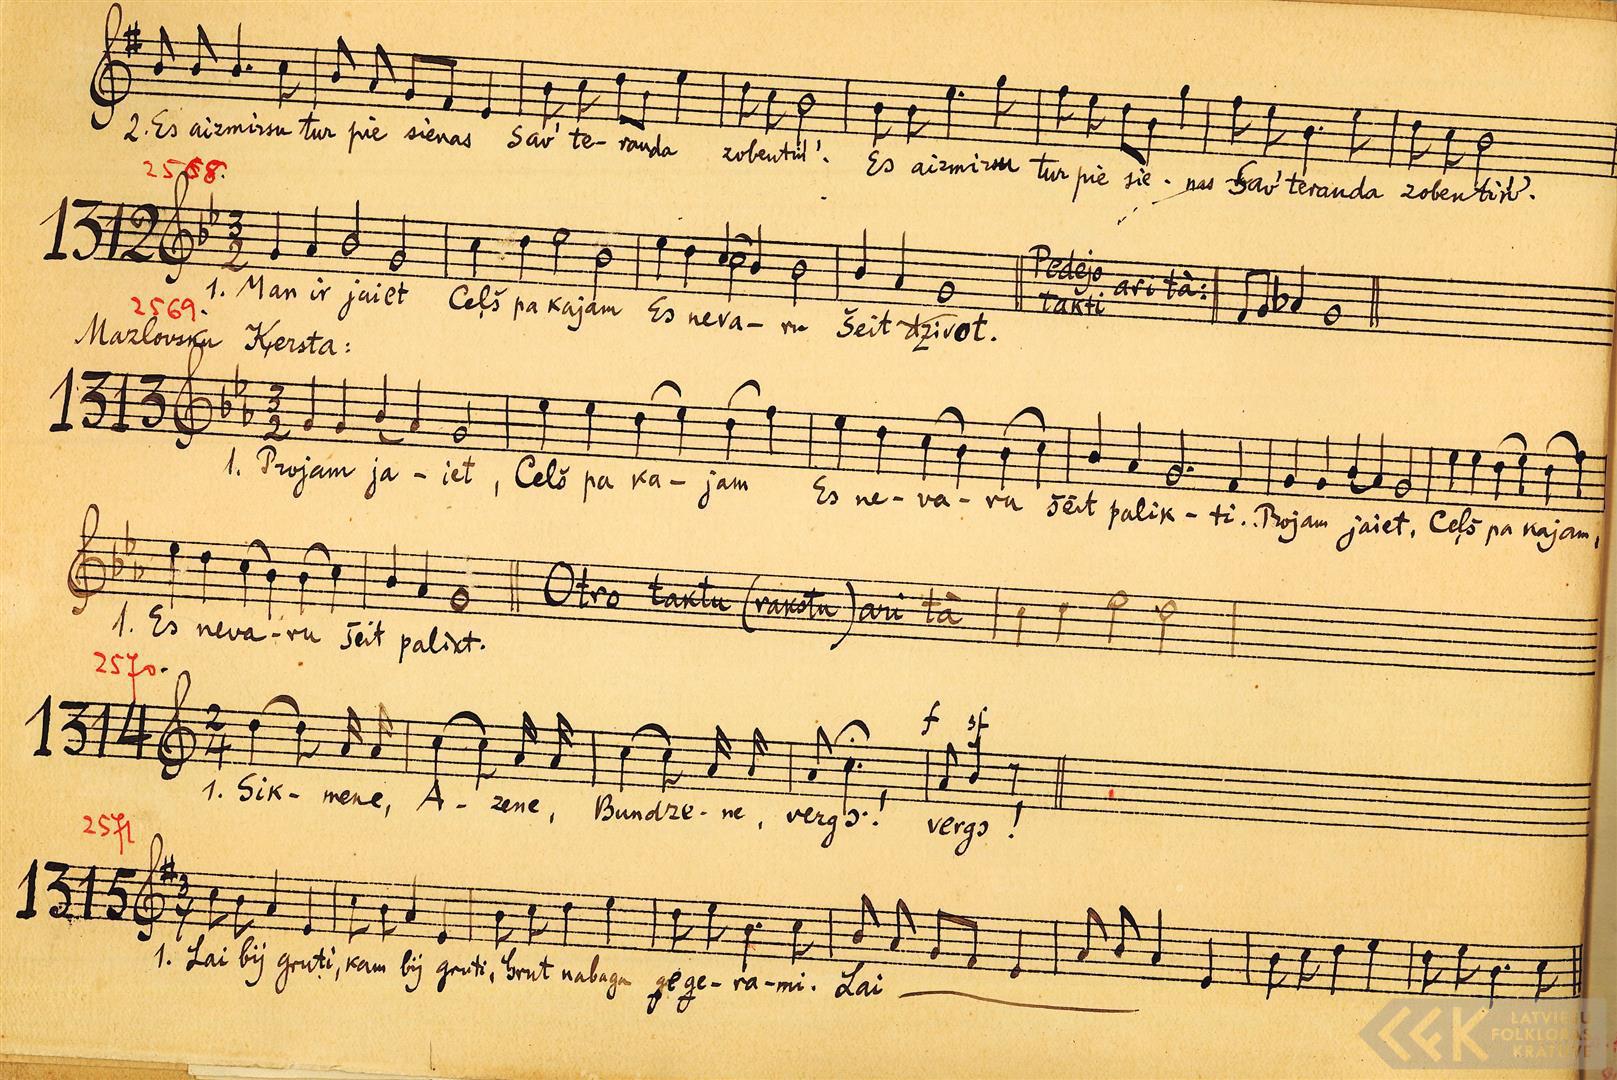 2. Es aizmirsu tur pie sienas Sav' te-randa zobentiń'. Es aizmirsu tur pie sie-nas Sav' teranda zobentiń'.
2568.
1312 3/2 Pedejo takti ari tà:
1. Man ir jaiet Ceļš pa kajam Es neva-ru Šeit dzivot.
2569.
Mazlovsku Ķersta:
1313 3/2
1. Projam ja-iet, Celš pa ka-jam Es ne-va-ru šeit palik-ti. Projam jaiet, Ceļš pa kajam,
Otro taktu (rakstu) ari tà
1. Es neva-ru šeit palikt.
2570.
1314 2/4 f sf
1. Sik-mene, A-zene, Bundze-ne, vergs! vergs!
2571
1315 3/4
1. Lai bij gruti, kam bij gruti, Grut nabaga gege-ra-mi. Lai
LATVIEŠU
FOLKLORAS
KRĀTUVE